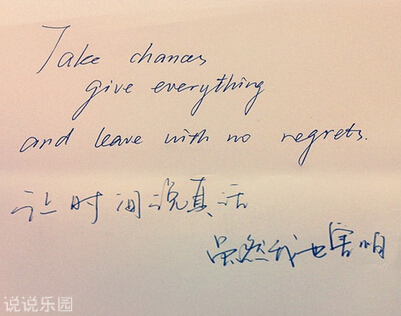 Take chances
give everything
and leave with no regrets.
让时间说真话
虽然我也害怕
说说乐园